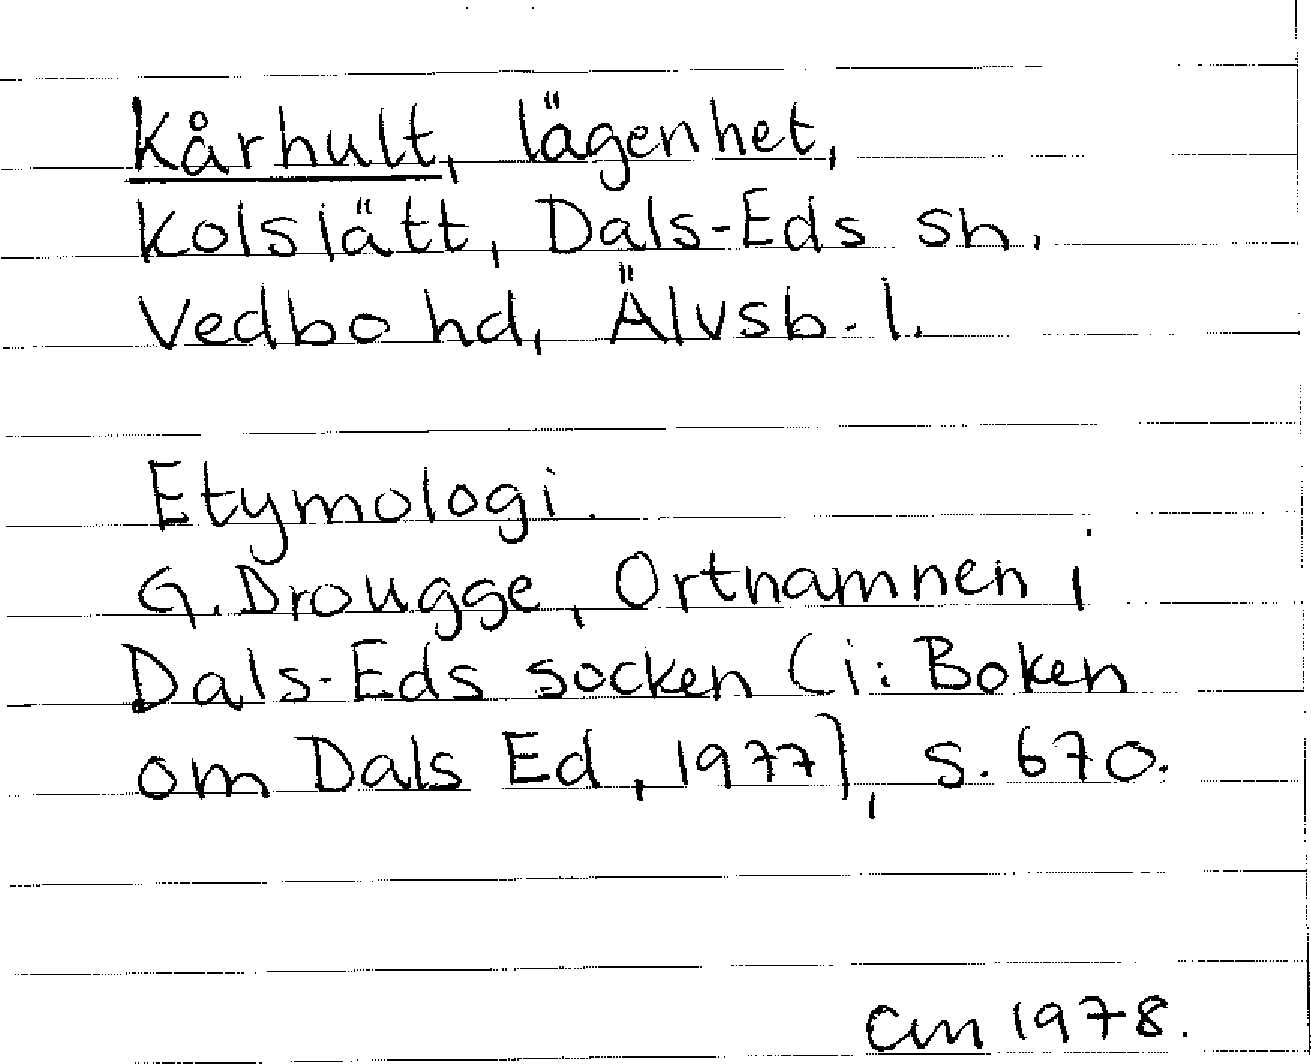 Kårhult, lägenhet,
Kolslätt, Dals-Eds sn.
Vedbo hd, Älvsb. l.
Etymologi.
G. Drougge, Ortnamnen i
Dals-Eds socken (i: Boken
om Dals Ed, 1977), s. 670.
CM 1978.